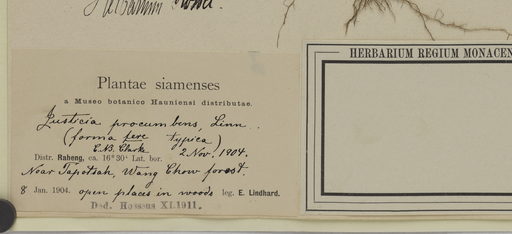 Herbarium
HERBARIUM REGIUM MONACEN
Plantae siamenses
a Museo botanico Hauniensi distributae.
Justicia procumbens, Linn.
(forma fere typica)
C.B. Clarke 2 Nov. 1904.
Distr. Raheng, ca. 16°30' Lat. bor.
Near Tapotsah, Wang Chow forest.
8 Jan. 1904. open places in woods leg. E. Lindhard.
Ded. Hosseus XI.1911.